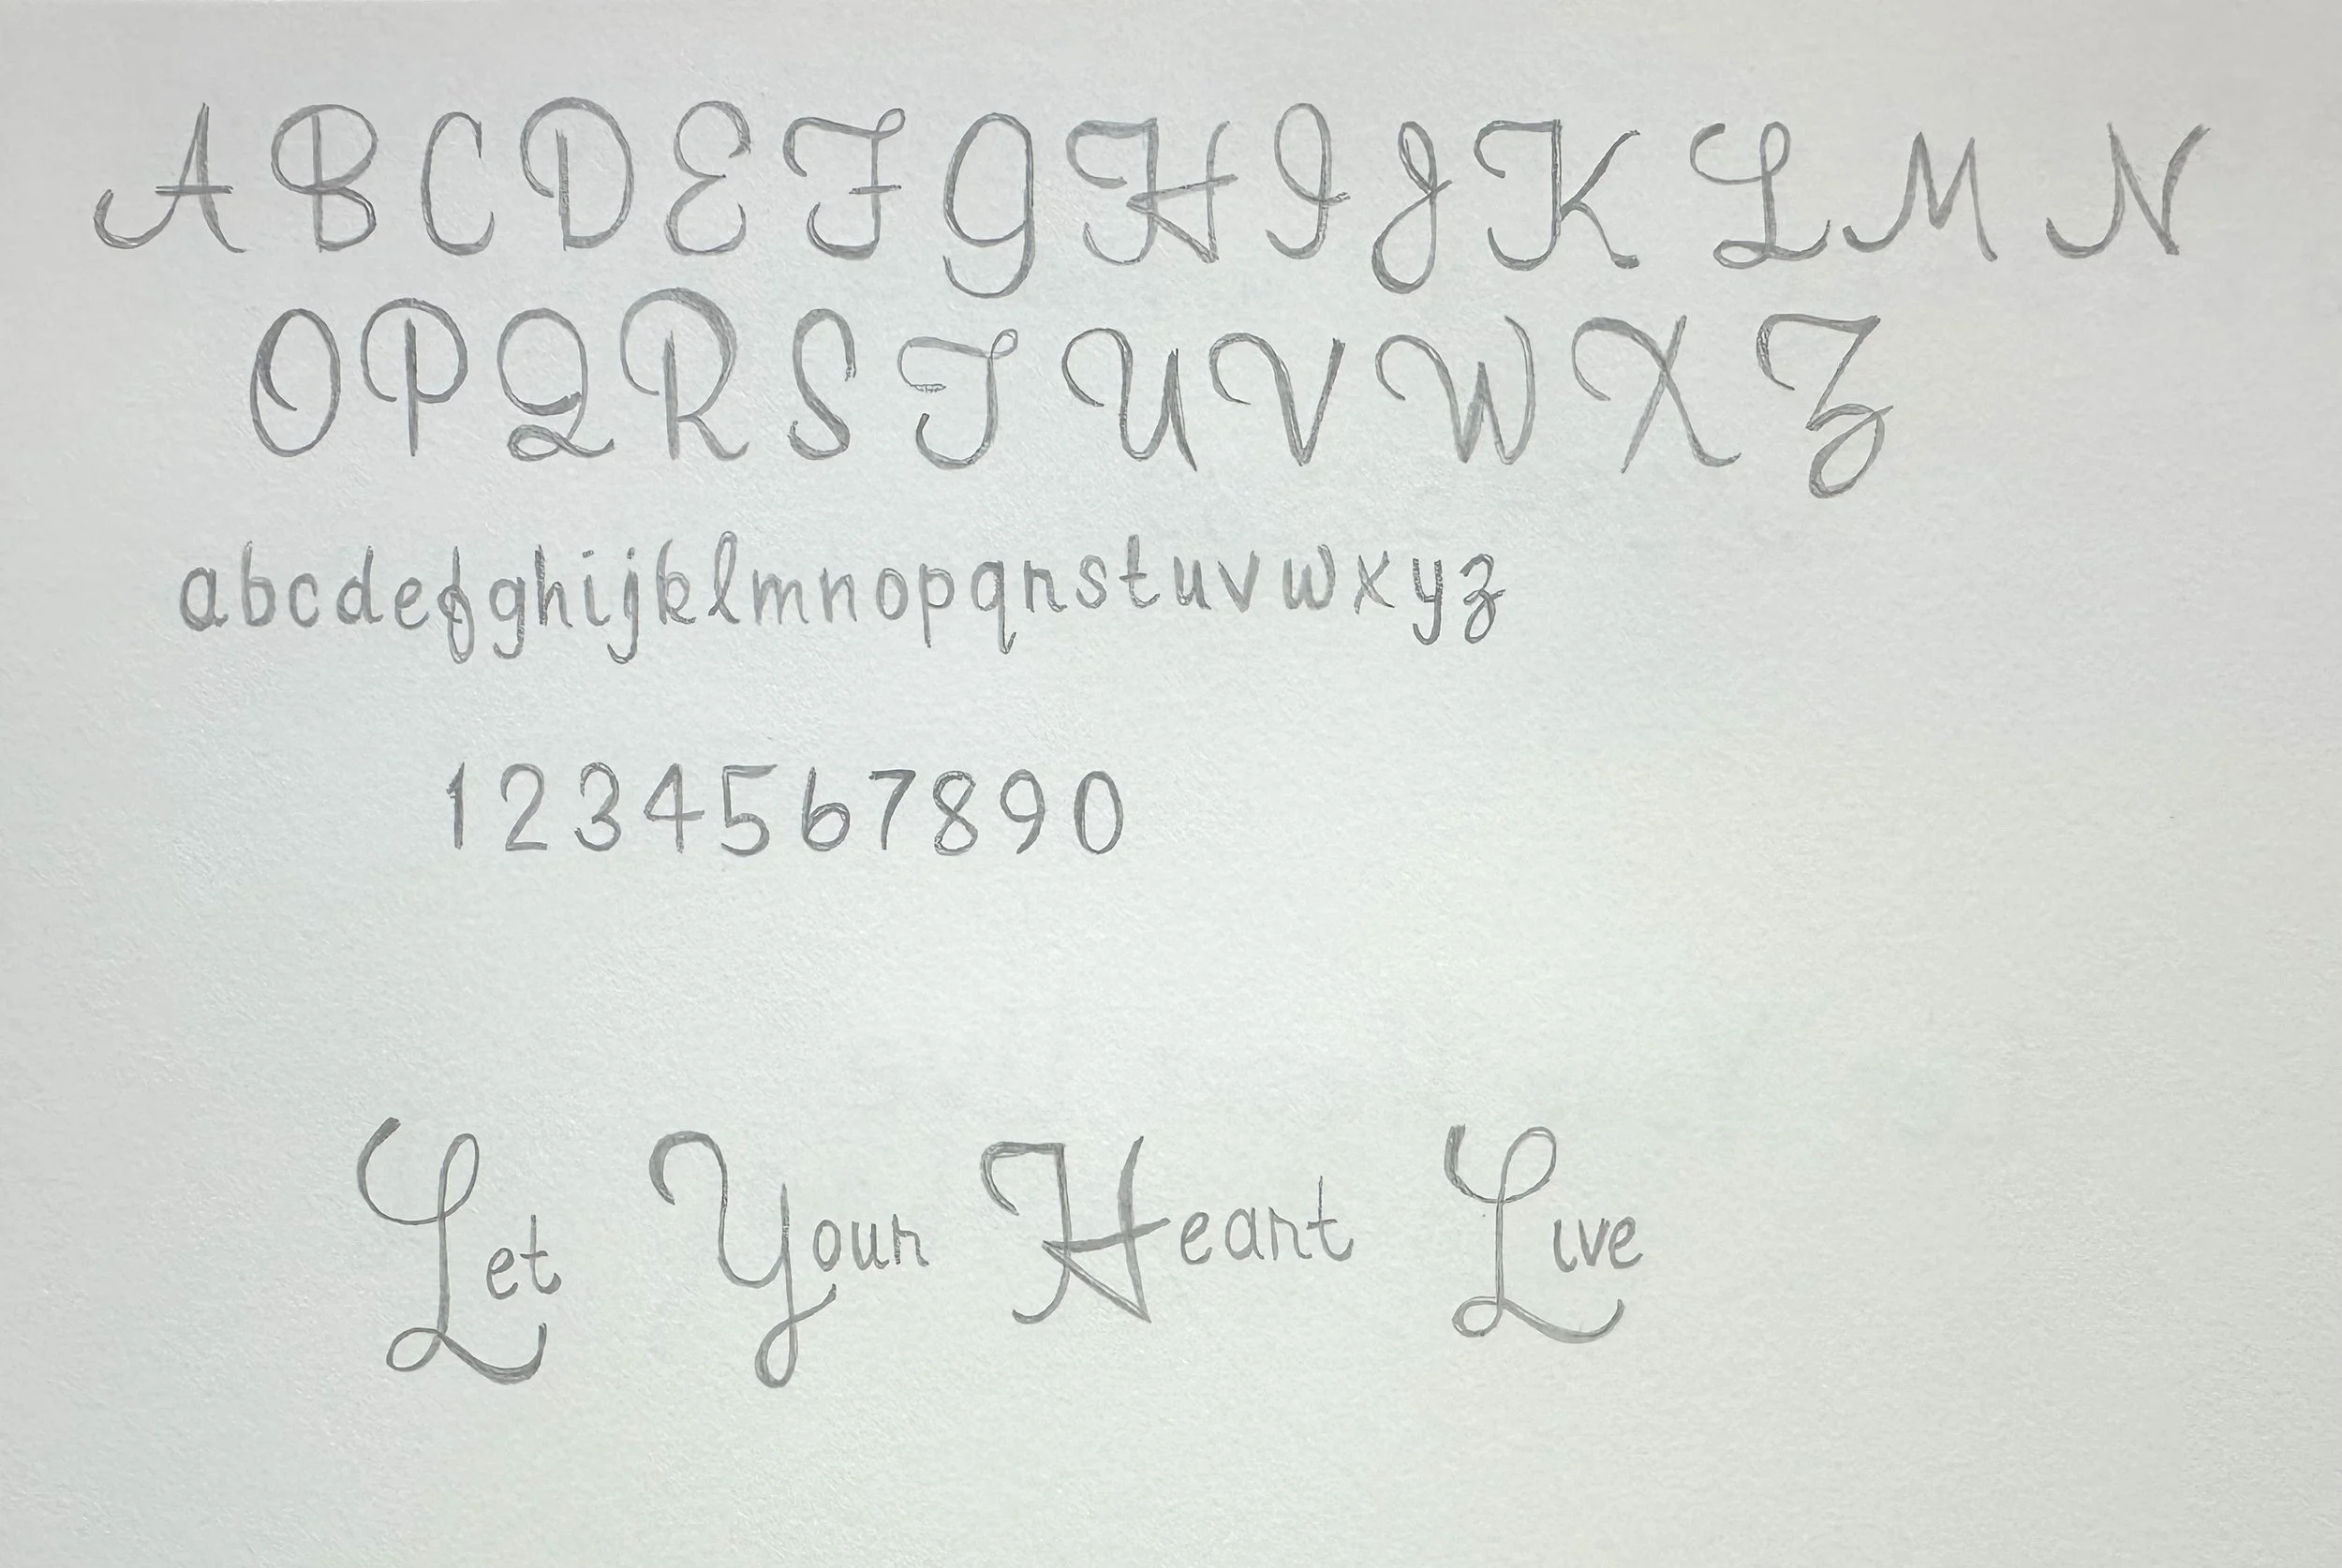 A B C D E F G H I J K L M N
O P Q R S T U V W X Z
a b c d e f g h i j k l m n o p q r s t u v w x y z
1 2 3 4 5 6 7 8 9 0
Let Your Heart Live